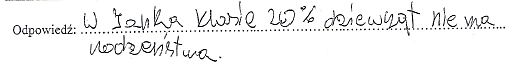 Odpowiedź: W Janka klasie 20% dziewcząt nie ma
rodzeństwa.